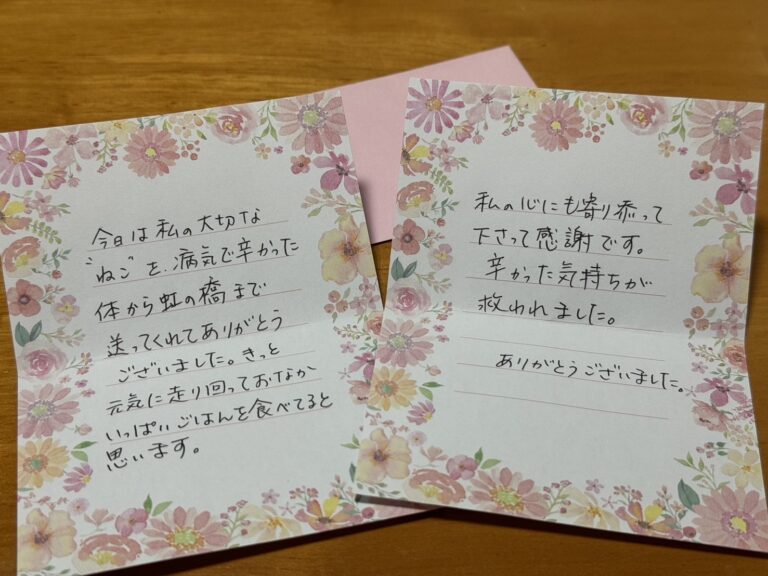 今日は私の大切な
"ねこ"を、病気で辛かった
体から虹の橋まで
送ってくれてありがとう
ございました。きっと
元気に走り回っておなか
いっぱいごはんを食べてると
思います。
私の心にも寄り添って
下さって感謝です。
辛かった気持ちが
救われました。
ありがとうございました。